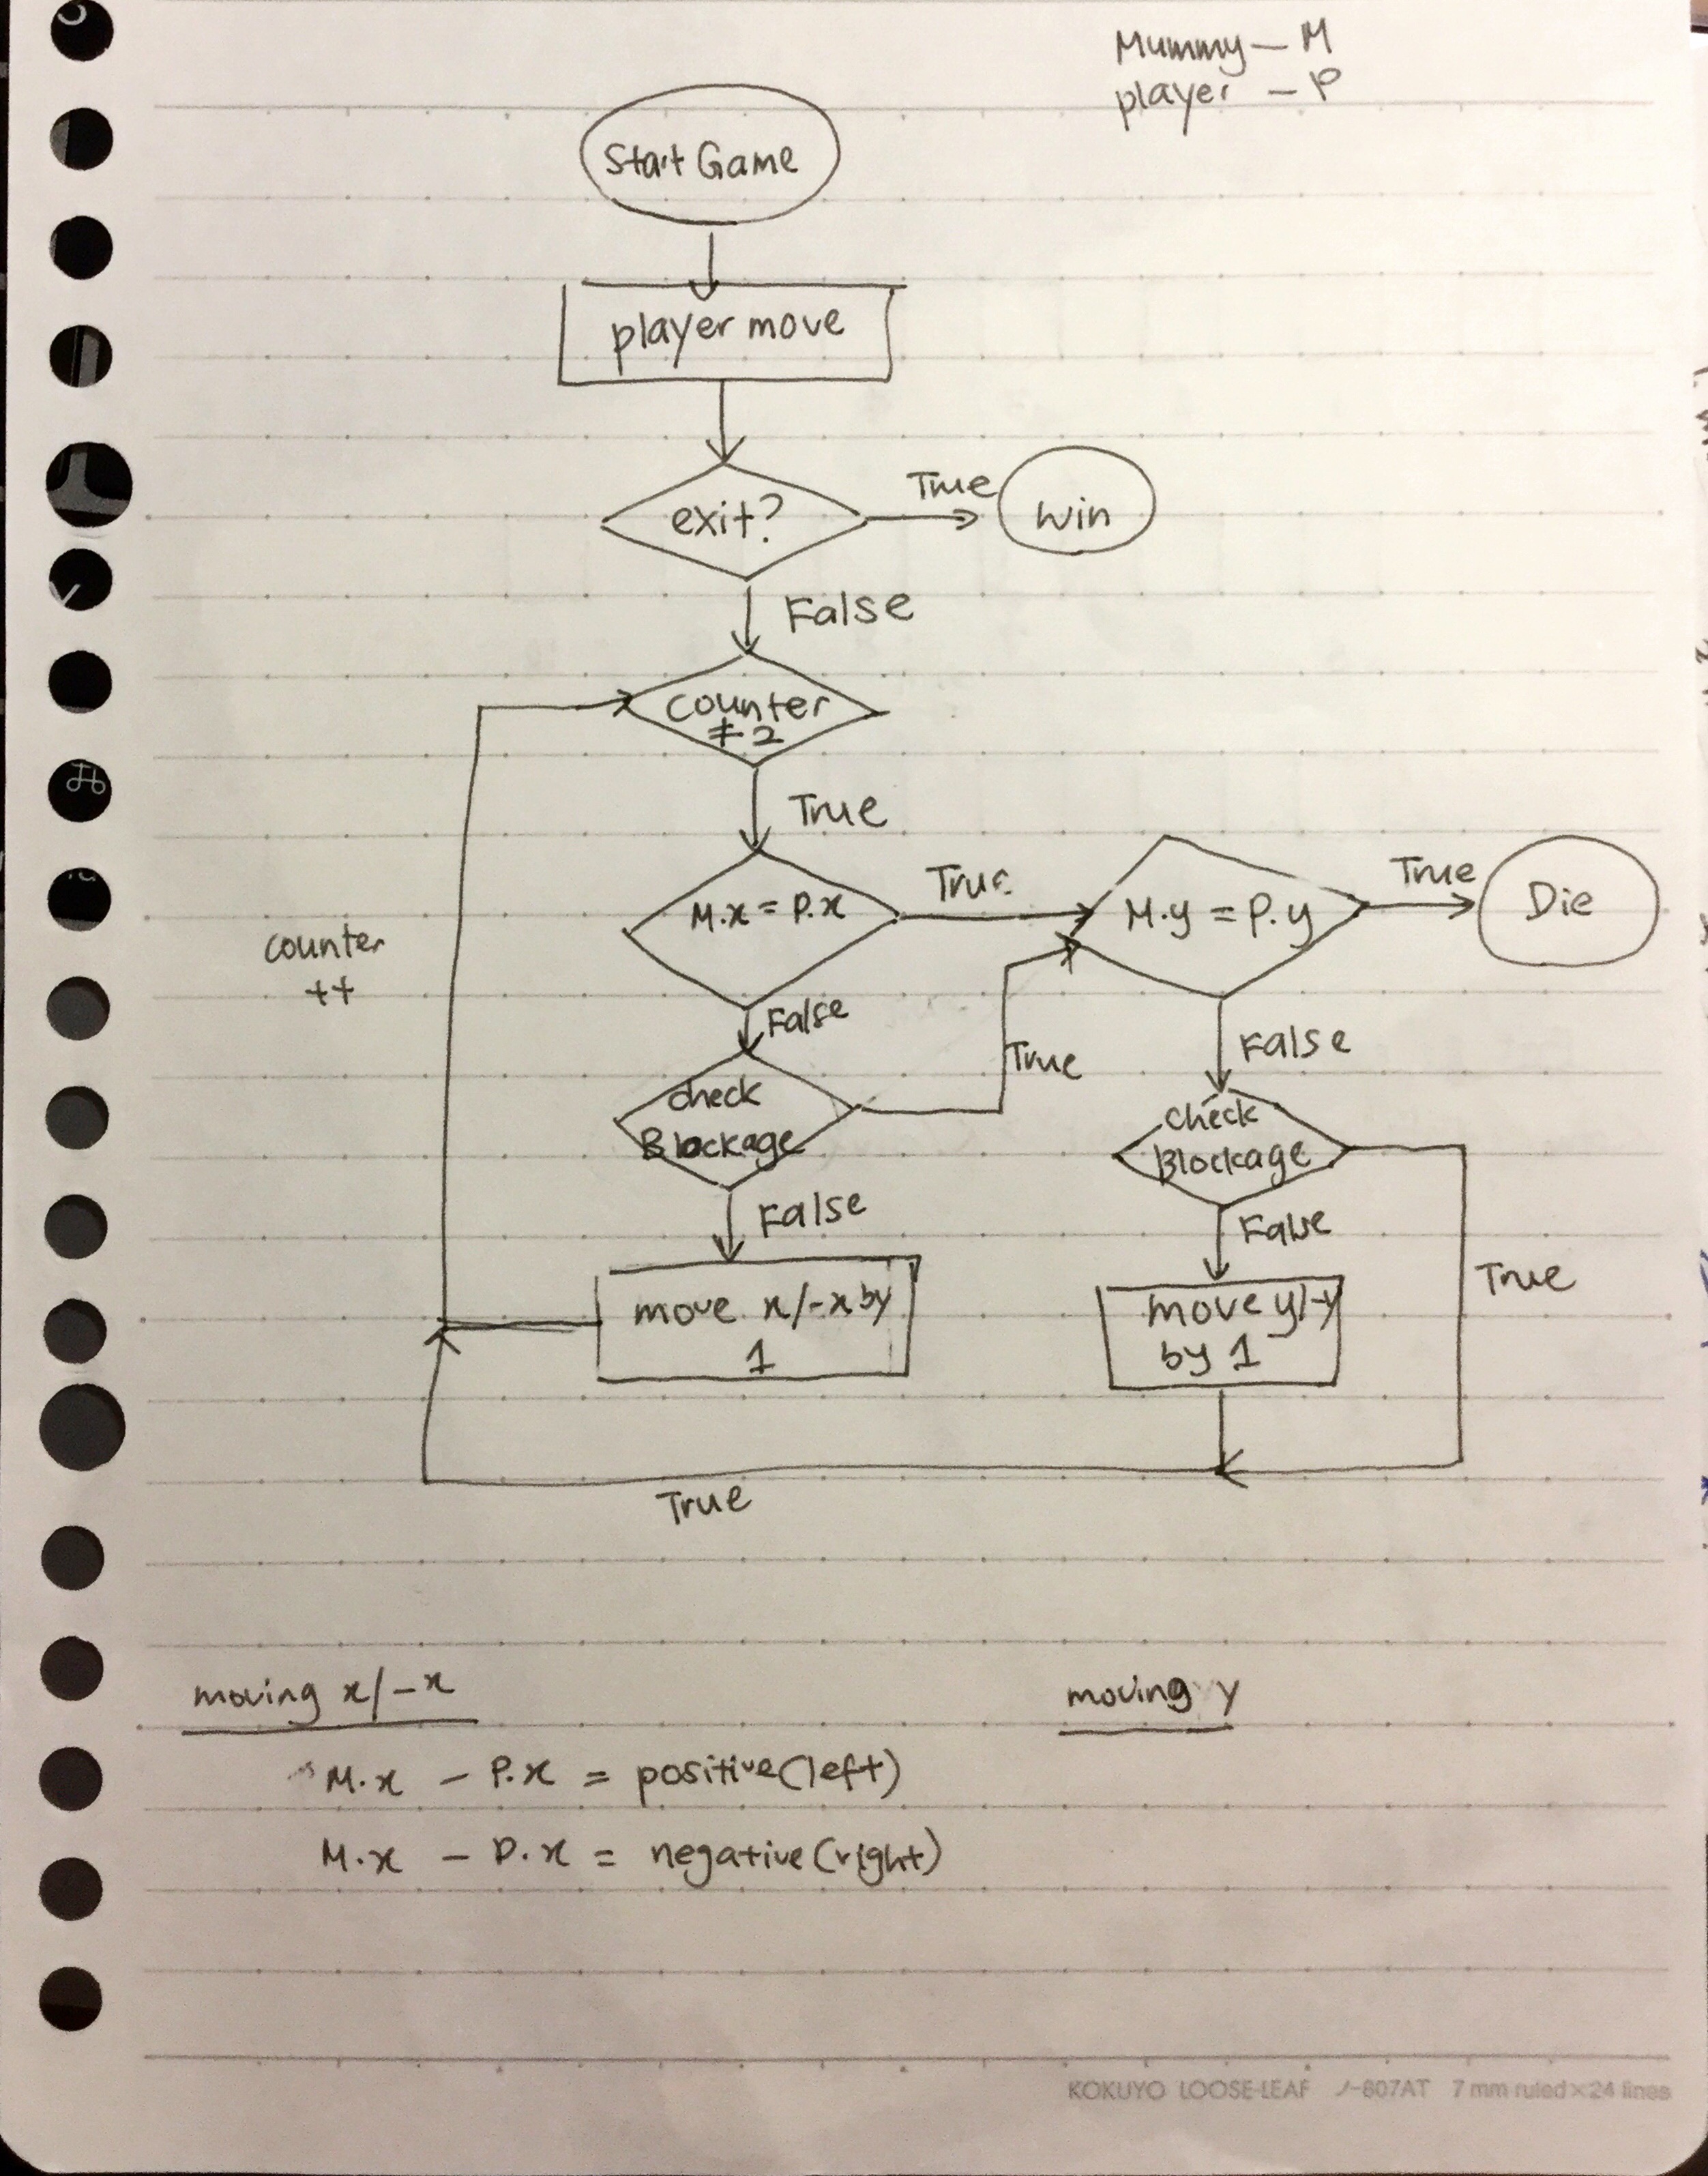 Mummy — M
player — P
Start Game
player move
exit?
True
win
False
counter
≠ 2
True
M.x = P.x
True
M.y = P.y
True
Die
counter
++
False
True
False
check
Blockage
check
Blockage
False
False
True
move x/-x by
1
move y/-y
by 1
True
moving x/-x
moving y
M.x - P.x = positive(left)
M.x - P.x = negative(right)
KOKUYO LOOSE-LEAF ノ-807AT 7 mm ruled×24 lines